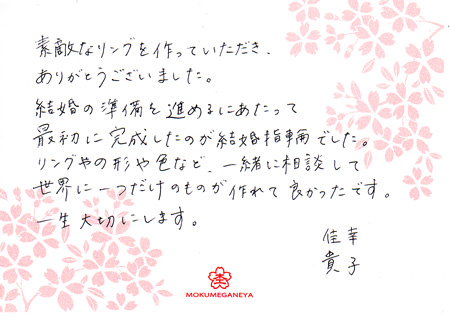 素敵なリングを作っていただき、
ありがとうございました。
結婚の準備を進めるにあたって
最初に完成したのが結婚指輪でした。
リングやの形や色など、一緒に相談して
世界に一つだけのものが作れて良かったです。
一生大切にします。
佳幸
貴子
MOKUMEGANEYA